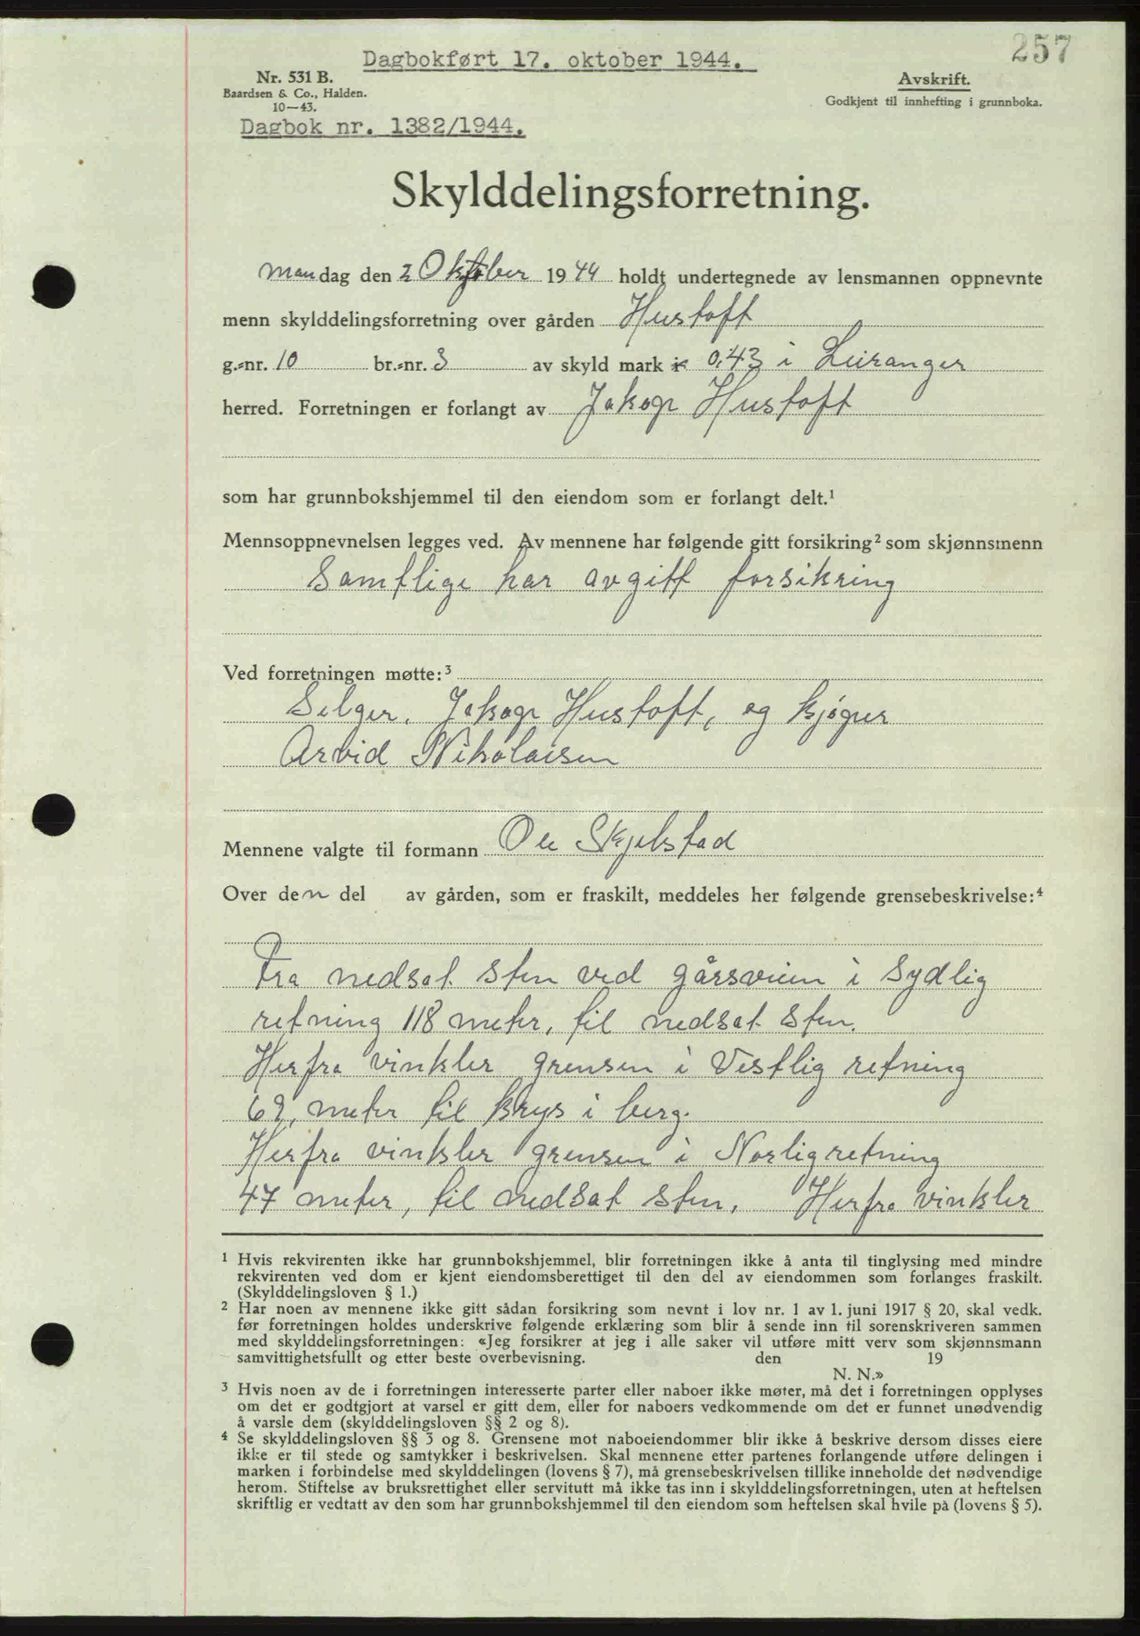 257
Dagbokført 17. oktober 1944.
Nr. 531 B.
Baardsen & Co., Halden.
10—43.
Avskrift.
Godkjent til innhefting i grunnboka.
Dagbok nr. 1382/1944.
Skylddelingsforretning.
mandag den 2 Oktober 1944 holdt undertegnede av lensmannen oppnevnte
menn skylddelingsforretning over gården Hustoft
g.-nr. 10 br.-nr. 3 av skyld mark 0,43 i Leiranger
herred. Forretningen er forlangt av Jakop Hustoft
som har grunnbokshjemmel til den eiendom som er forlangt delt.¹
Mennsoppnevnelsen legges ved. Av mennene har følgende gitt forsikring² som skjønnsmenn
Samtlige har avgitt forsikring
Ved forretningen møtte:³
Selger. Jakop Hustoft, og kjøper
Arvid Nikolaisen
Mennene valgte til formann Ole Skjelstad
Over den del av gården, som er fraskilt, meddeles her følgende grensebeskrivelse:⁴
Fra nedsat sten ved gårsveien i Sydlig
retning 118 meter, til nedsat sten.
Herfra vinkler grensen i Vestlig retning
69, meter til krys i berg.
Herfra vinkler grensen i Norlig retning
47 meter, til nedsat sten. Herfra vinkler
¹ Hvis rekvirenten ikke har grunnbokshjemmel, blir forretningen ikke å anta til tinglysing med mindre
rekvirenten ved dom er kjent eiendomsberettiget til den del av eiendommen som forlanges fraskilt.
(Skylddelingsloven § 1.)
² Har noen av mennene ikke gitt sådan forsikring som nevnt i lov nr. 1 av 1. juni 1917 § 20, skal vedk.
før forretningen holdes underskrive følgende erklæring som blir å sende inn til sorenskriveren sammen
med skylddelingsforretningen: «Jeg forsikrer at jeg i alle saker vil utføre mitt verv som skjønnsmann
samvittighetsfullt og etter beste overbevisning. den 19
N. N.»
³ Hvis noen av de i forretningen interesserte parter eller naboer ikke møter, må det i forretningen opplyses
om det er godtgjort at varsel er gitt dem, eller for naboers vedkommende om det er funnet unødvendig
å varsle dem (skylddelingsloven §§ 2 og 8).
⁴ Se skylddelingsloven §§ 3 og 8. Grensene mot naboeiendommer blir ikke å beskrive dersom disses eiere
ikke er til stede og samtykker i beskrivelsen. Skal mennene etter partenes forlangende utføre delingen i
marken i forbindelse med skylddelingen (lovens § 7), må grensebeskrivelsen tillike inneholde det nødvendige
herom. Stiftelse av bruksrettighet eller servitutt må ikke tas inn i skylddelingsforretningen, uten at heftelsen
skriftlig er vedtatt av den som har grunnbokshjemmel til den eiendom som heftelsen skal hvile på (lovens § 5).